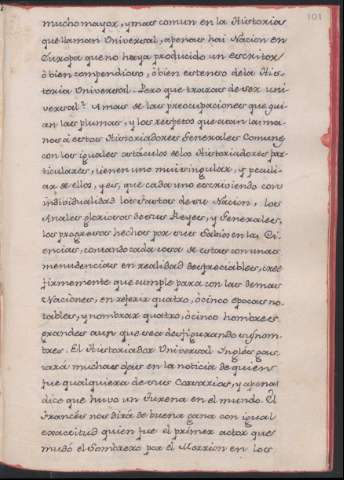 101
mucho mayor, y mas comun en la Historia
que llaman Universal, apenas hai Nacion en
Europa que no haya producido un escritor
ò bien compendioso, ò bien estenso de la His-
toria Universal. Pero que trazas de ser uni-
versal? A mas de las preocupaciones que gui-
an las plumas, y los respetos que atan la ma-
no à estos Historiadores Generales Comunes
con los iguales obstáculos de los Historiadores par-
ticulares, tienen uno mui singular, y peculi-
ar de ellos, y es, que cada uno escriviendo con
individualidad los fastos de su Nacion, los
Anales gloriosos de sus Reyes, y Generales,
los progresos hechos por sus Sabios en las Ci-
encias, contando cada cosa de estas con unas
menudencias en realidad despreciables, cree
firmemente que cumple para con las demas
Naciones, en referir quatro, ò cinco epocas no-
tables, y nombrar quatro, ò cinco hombres
grandes aun que sea desfigurando sus nom-
bres. El Historiador Universal Ingles gas-
tará muchas ojas en la noticia de quien
fue qualquiera de sus Corsarios, y apenas
dice que huvo un Turena en el mundo. El
Francès nos dirá de buena gana con igual
exactitud quien fue el primer actor que
mudó el Sombrero por el Morrion en los